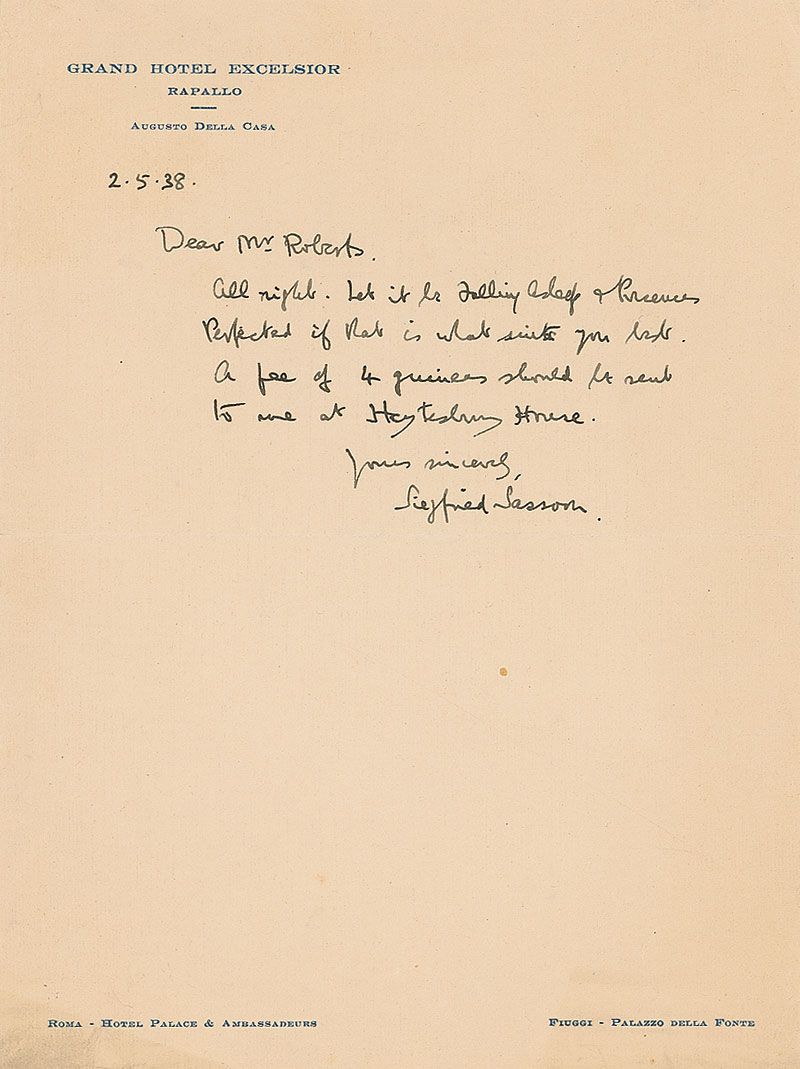 GRAND HOTEL EXCELSIOR
RAPALLO
AUGUSTO DELLA CASA
2.5.38.
Dear Mr Roberts.
All right. Let it be Falling Asleep & Presences
Perfected if that is what suits you best.
A fee of 4 guineas should be sent
to me at Heytesbury House.
Yours sincerely,
Siegfried Sassoon.
ROMA - HOTEL PALACE & AMBASSADEURS
FIUGGI - PALAZZO DELLA FONTE